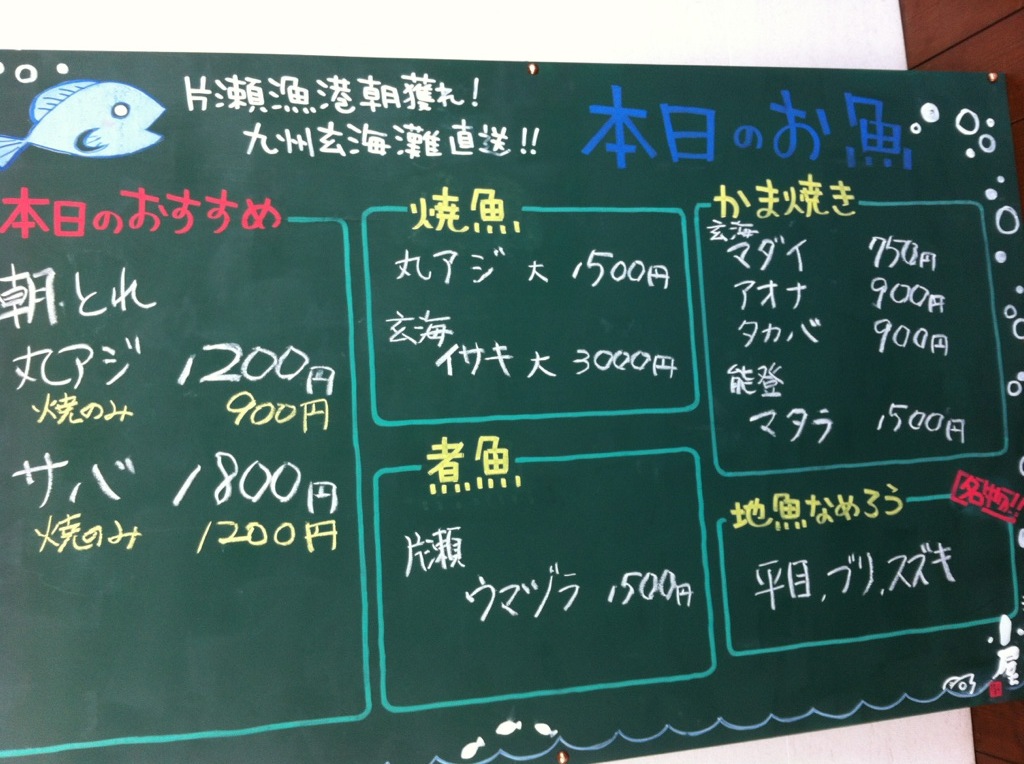 片瀬漁港朝獲れ!
九州玄海灘直送!!
本日のお魚
本日のおすすめ
朝とれ
丸アジ 1200円
焼のみ 900円
サバ 1800円
焼のみ 1200円
焼魚
丸アジ 大 1500円
玄海
イサキ 大 3000円
煮魚
片瀬
ウマヅラ 1500円
かま焼き
玄海
マダイ 750円
アオナ 900円
タカバ 900円
能登
マタラ 1500円
地魚なめろう
名物!!
平目,ブリ,スズキ
小屋